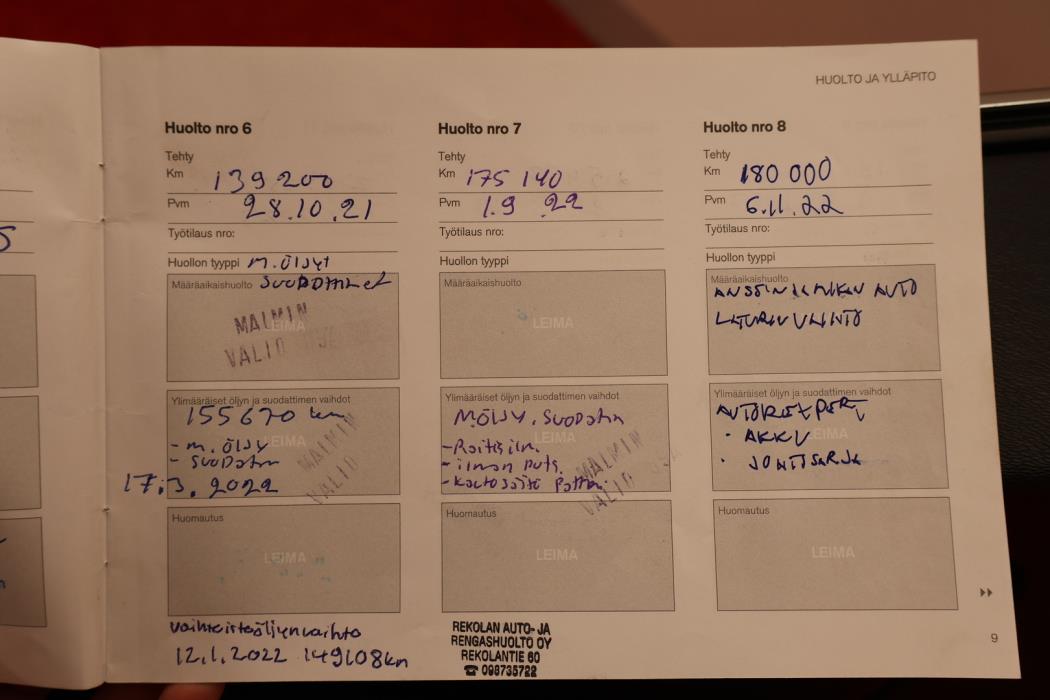 HUOLTO JA YLLÄPITO
Huolto nro 6
Tehty
Km 139 200
Pvm 28.10.21
Työtilaus nro:
Huollon tyyppi M.ÖLJYT
Määräaikaishuolto SUODATTIMET
LEIMA
MALMIN
VALIO
Ylimääräiset öljyn ja suodattimen vaihdot
155670 km
LEIMA
- M.ÖLJY
- SUODATIN
MALMIN
VALIO
17.3.2022
Huomautus
LEIMA
vaihteistoöljynvaihto
12.1.2022 149108km
Huolto nro 7
Tehty
Km 175 140
Pvm 1.9 22
Työtilaus nro:
Huollon tyyppi
Määräaikaishuolto
LEIMA
Ylimääräiset öljyn ja suodattimen vaihdot
MÖLJY, SUODATIN
LEIMA
- Raitisilm.
- ilman puts.
MALMIN
VALIO
Huomautus
LEIMA
REKOLAN AUTO- JA
RENGASHUOLTO OY
REKOLANTIE 60
☎ 098735722
Huolto nro 8
Tehty
Km 180 000
Pvm 6.11.22
Työtilaus nro:
Huollon tyyppi
Määräaikaishuolto
AUTO
LATURIN VAIHTO
Ylimääräiset öljyn ja suodattimen vaihdot
LEIMA
· AKKU
· JOHTOSARJA
Huomautus
LEIMA
9